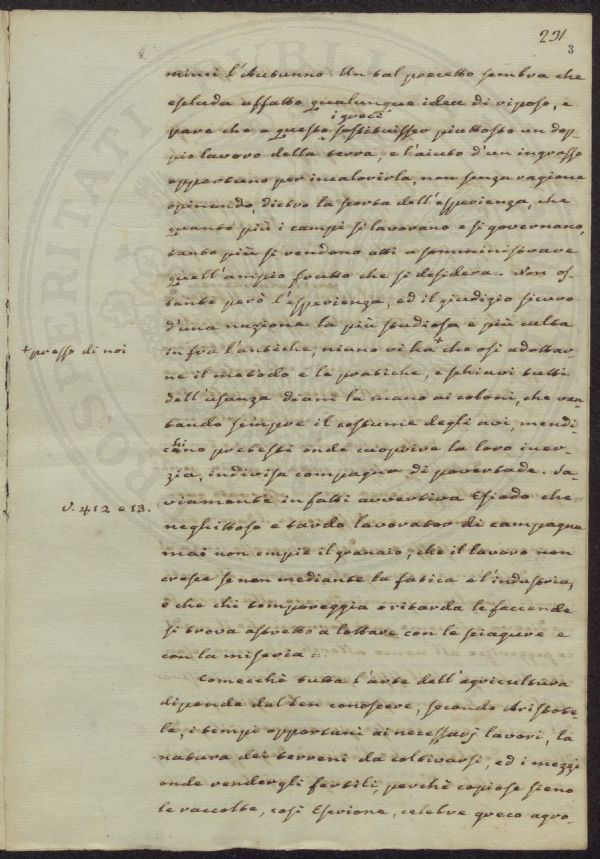 291
3
minci l'Autunno. Un tal precetto sembra che
escluda affatto qualunque idea di riposo, e
i greci
pare che a questo sostituisser piuttosto un dop-
pio lavoro della terra, e l'aiuto d'un ingrasso
opportuno per incalorirla, non senza ragione
opinando, dietro la scorta dell'esperienza, che
quanto più i campi si lavorano e si governano,
tanto più si rendono atti a somministrare
quell'ampio frutto che si desidera. Non os-
tante però l'esperienza, ed il giudizio sicuro
d'una nazione la più studiosa e più culta
+ presso di noi
infra l'antiche, niuno vi ha + che osi adottar-
ne il metodo e le pratiche, e schiavi tutti
dell'usanza diam la mano ai coloni, che van-
tando sempre il costume degli avi, mendi-
cano pretesti onde cuoprire la loro iner-
zia, indivisa compagna di povertade. Sa-
viamente infatti avvertiva Esiodo che
V. 412 e 13.
neghittoso e tardo lavorator di campagna
mai non empie il granaio, che il lavoro non
cresce se non mediante la fatica e l'industria,
e che chi temporeggia o ritarda le faccende
si trova astretto a lottare con le sciagure e
con la miseria.
Comecchè tutta l'arte dell'agricultura
dipenda dal ben conoscere, secondo Aristote-
le, i tempi opportuni ai necessarj lavori, la
natura dei terreni da coltivarsi, ed i mezzi
onde rendergli fertili, perchè copiose sieno
le raccolte, così Cherione, celebre greco agro-